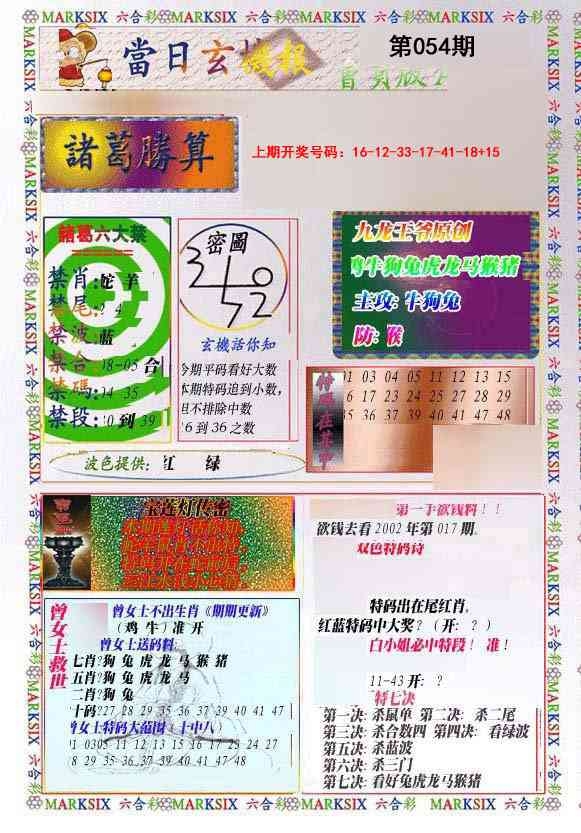 MARKSIX 六合彩 MARKSIX 六合彩 MARKSIX 六合彩 MARKSIX 六合彩
當日玄機报
第054期
諸葛勝算
上期开奖号码：16-12-33-17-41-18+15
諸葛六大禁
禁肖:蛇 羊
禁尾:? 4
禁波:蓝
禁合:08-05 合
禁碼:14 35
禁段:30 到 39
密圖
玄機話你知
今期平码看好大数
本期特码追到小数，
但不排除中数
16 到 36 之数
九龙王爷原创
鸡牛狗兔虎龙马猴猪
主攻: 牛狗兔
防: 猴
特碼在其中
01 03 04 05 11 12 13 15
16 17 23 24 25 27 28 29
35 36 37 39 40 41 47 48
波色提供: 红 绿
宝莲灯传密
第一手欲钱料！！
欲钱去看 2002 年第 017 期.
双色特码诗
特码出在尾红肖.
红蓝特码中大奖?（开: ？）
白小姐必中特段！ 准！
11-43 开: ？
特七决
第一决: 杀鼠单 第二决: 杀二尾
第三决: 杀合数四 第四决: 看绿波
第五决: 杀蓝波
第六决: 杀三门
第七决: 看好兔虎龙马猴猪
曾女士救世
曾女士不出生肖《期期更新》
（鸡 牛）准 开
曾女士送码料:
七肖?狗 兔 虎 龙 马 猴 猪
五肖?兔 虎 龙 马
二肖?狗 兔
十码?27 28 29 35 36 37 39 40 41 47
曾女士特码大范围（十中八）
01 0305 11 12 13 15 16 17 23 24 27
28 29 35 36 37 39 40 41 47 48
MARKSIX 六合彩 MARKSIX 六合彩 MARKSIX 六合彩 MARKSIX 六合彩